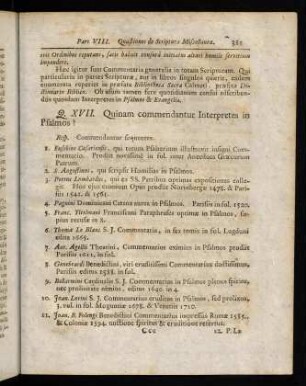 Pars VIII. Quæstiones de Scriptura Miscellanea. 385
tois Ordinibus reputant, satis habeat censura initiatos
impendere.
Hæc igitur sunt Commentaria generalia in totam Scripturam. Qui
particularia in partes Scripturæ, aut in libros singulos quærit, eadem
Bibliotheca Sacra Calmeti, præfixa Di-
ctionario Biblico. Ob usum tamen
quosdam Interpretes in Psalmos & Evangelia.
Q. XVII. Quinam commendantur Interpretes in
Psalmos?
Resp. Commendantur sequentes.
1. Eusebius Cæsariensis, qui totum Psalterium illustravit insigni Commen-
tario. Prodiit in fol. Græcorum
Patrum.
2. S. Augustinus, qui scripsit Homilias in Psalmos.
3. Petrus Lombardus, qui ex SS. Patribus optimas expositiones colle-
git. Hoc ejus eximium Opus prodiit Norimbergæ 1478. & Pari-
siis 1541. & 1561.
4. Pagnini Dominicani Catena aurea in Psalmos. Parisiis in fol. 1520.
5. Franc. Titelmani Franciscani Paraphrasis optima in Psalmos, sæ-
pius recusa in 8.
6. Thomæ Le Blanc S. J. Commentaria, in sex tomis in fol. Lugduni
edita 1665.
7. Ant. Agellii Theatini, Commentarius eximius in Psalmos prodiit
Parisiis 1611. in fol.
8. Genebrardi Benedictini, viri eruditissimi Commentarius doctissimus,
Parisiis editus 1588. in fol.
9. Bellarmini Cardinalis S. J. Commentarius in Psalmos plenus spiritu,
nec eruditione minùs, editus 1640. in 4.
10. Joan. Lorini S. J. Commentarius eruditus in Psalmos, sed prolixus,
3. vol. in fol. Moguntiæ 1678. & Venetiis 1720.
11. Joan. B. Folengi Benedictini Commentarius impressus Romæ 1585.
& Coloniæ 1594. unctione spiritûs & eruditione refertus.
Ccc 12. P. Le